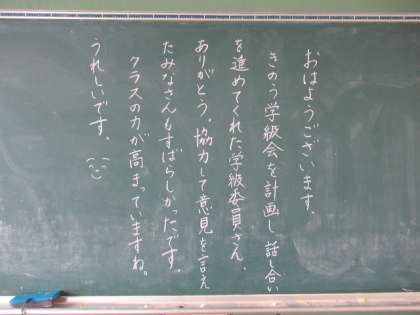 おはようございます。
きのう学級会を計画し、話し合い
を進めてくれた学級委員さん、
ありがとう。協力して意見を言え
たみなさんもすばらしかったです。
クラスの力が高まっていますね。
うれしいです。